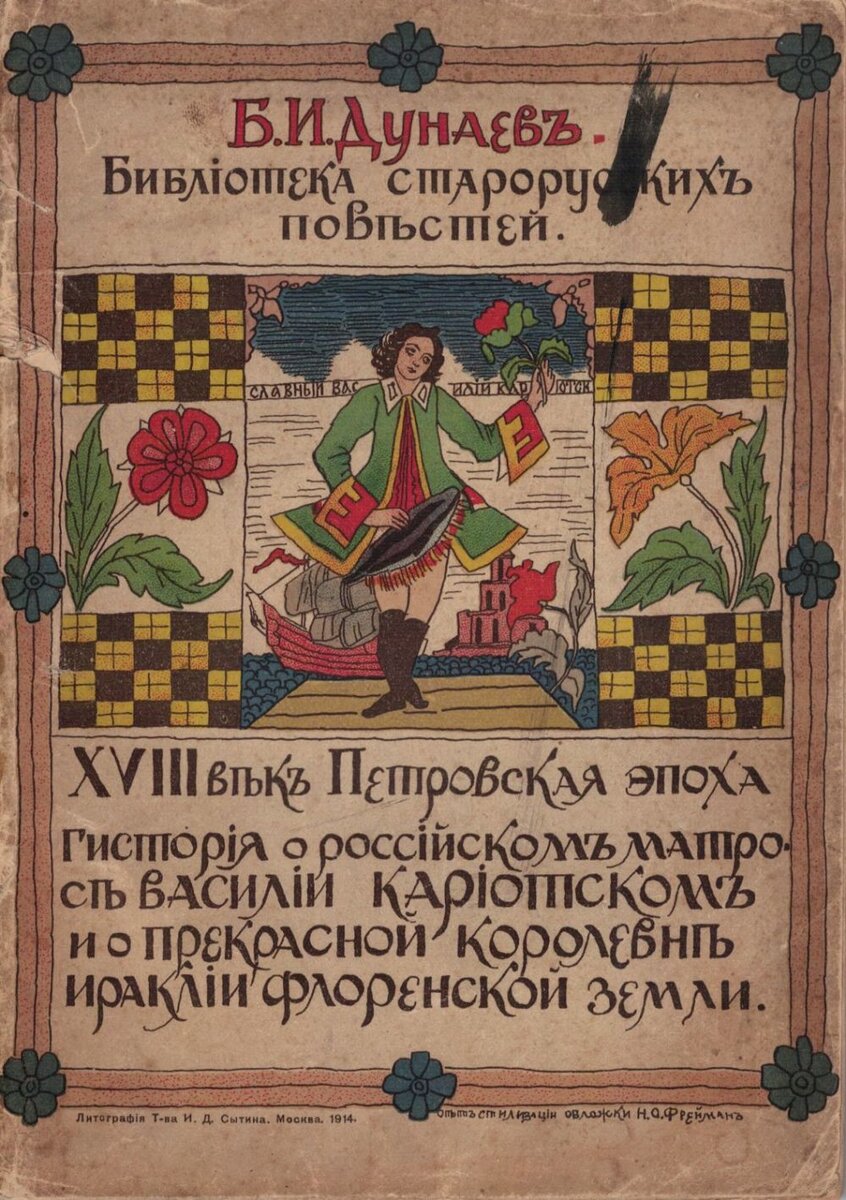 Б.И.Дунаевъ.
Библіотека старорусскихъ
повѣстей.
СЛАВНЫЙ ВАСИЛІЙ КАРІОТСК
XVIII вѣкъ Петровская эпоха
Гисторія о россійскомъ матро-
сѣ Василіи Каріотскомъ
и о прекрасной королевнѣ
Ираклии Флоренской земли.
Литографія Т-ва И. Д. Сытина. Москва. 1914.
опытъ стилизаціи обложки Н.О.Фрейманъ